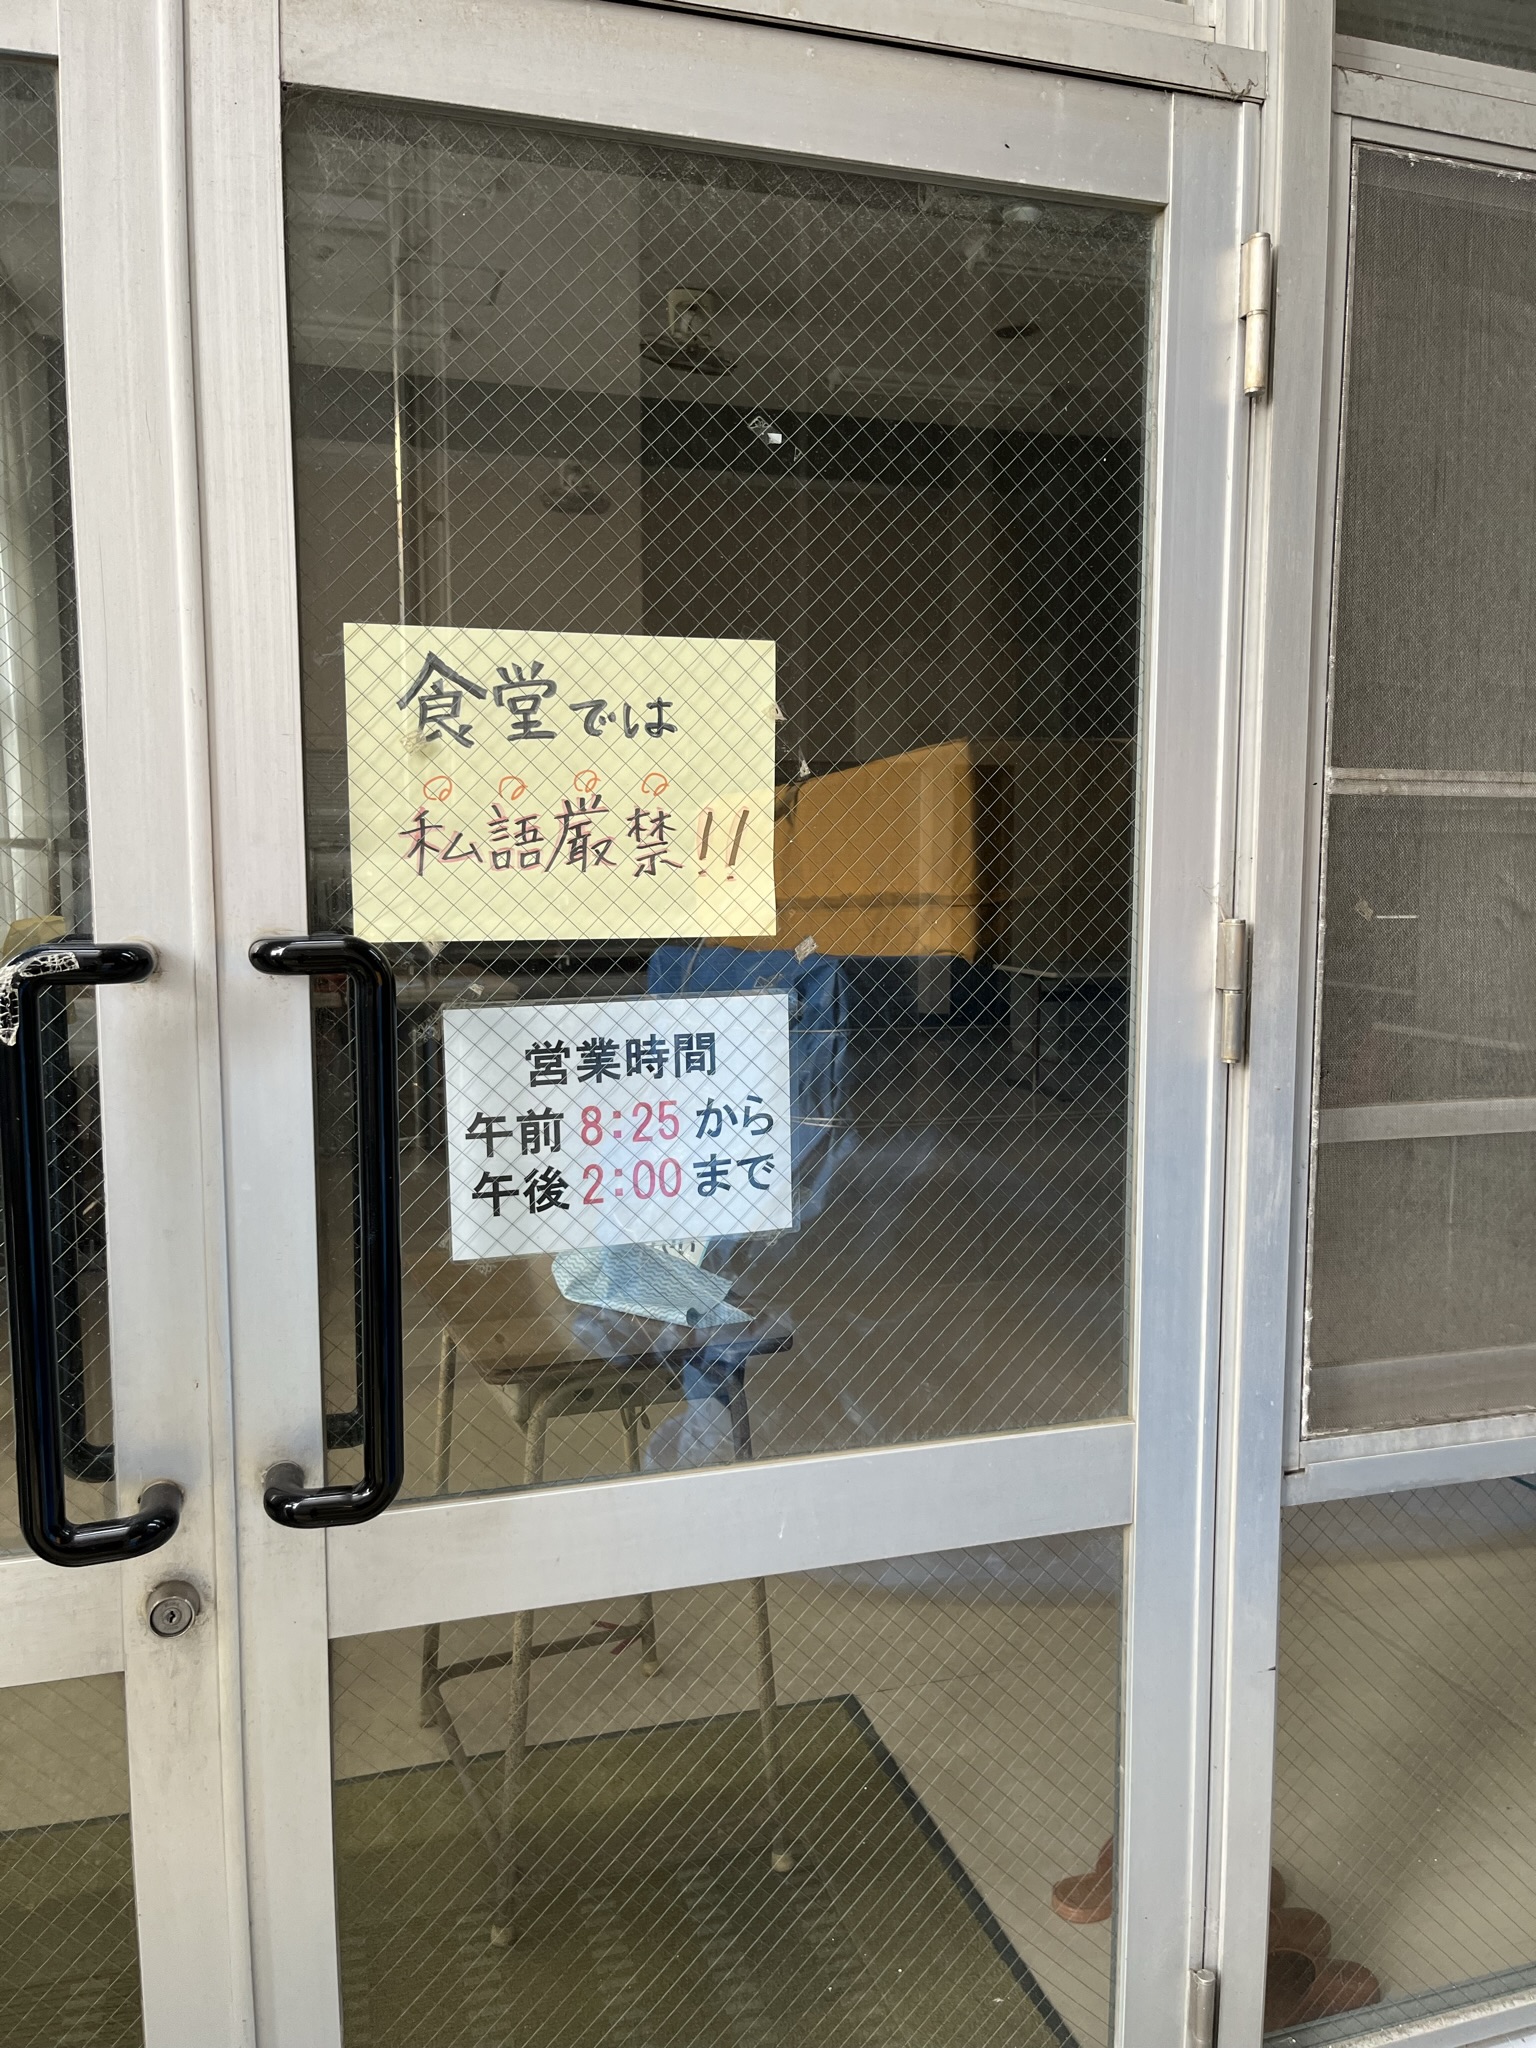 食堂では
私語厳禁!!
営業時間
午前 8:25 から
午後 2:00 まで